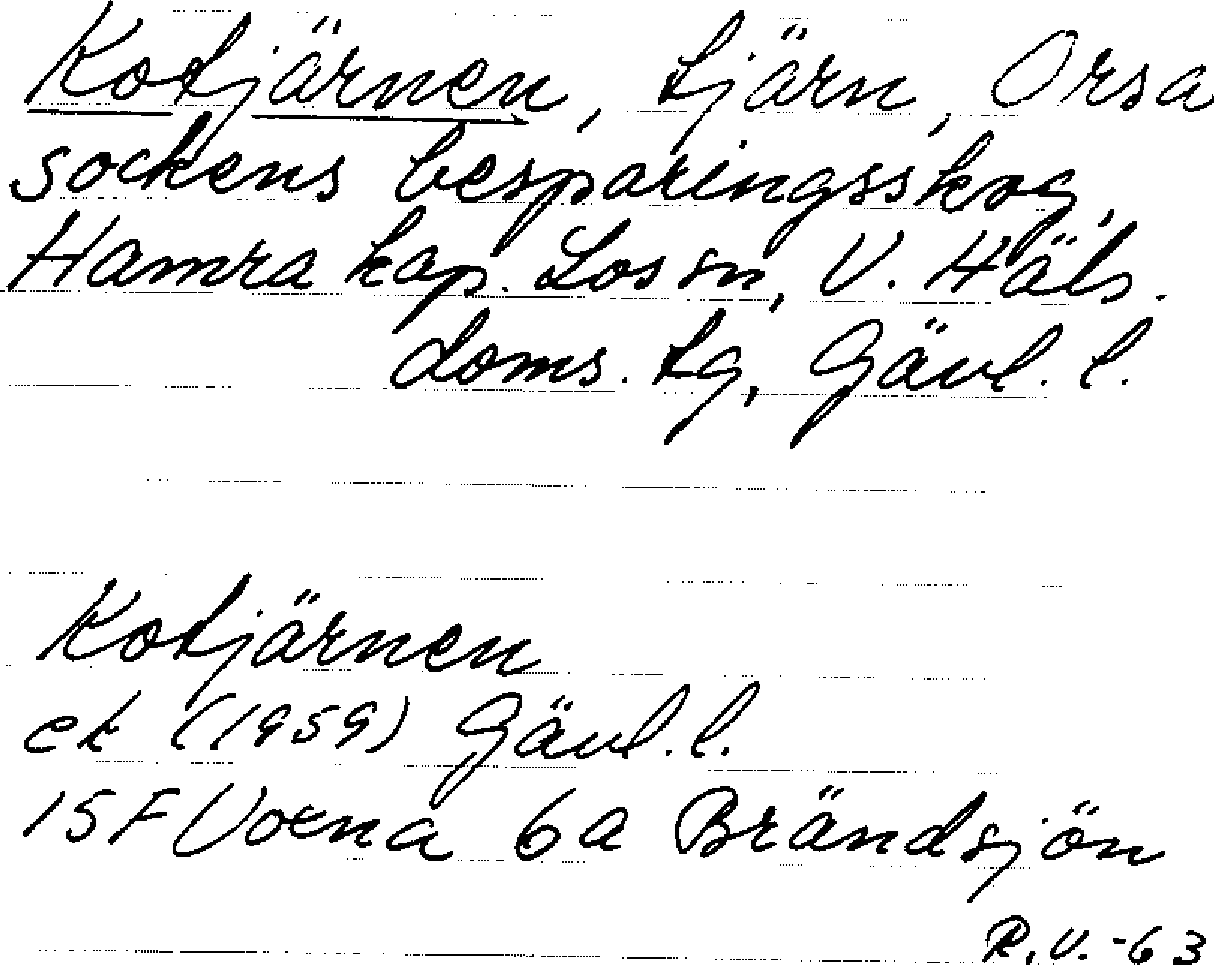 Kotjärnen, tjärn, Orsa
sockens besparingsskog,
Hamra kap. Los sn, V. Häls.
doms. tg, Gävl. l.
Kotjärnen
ek (1959) Gävl. l.
15F Voxna 6a Brändsjön
R.V. -63